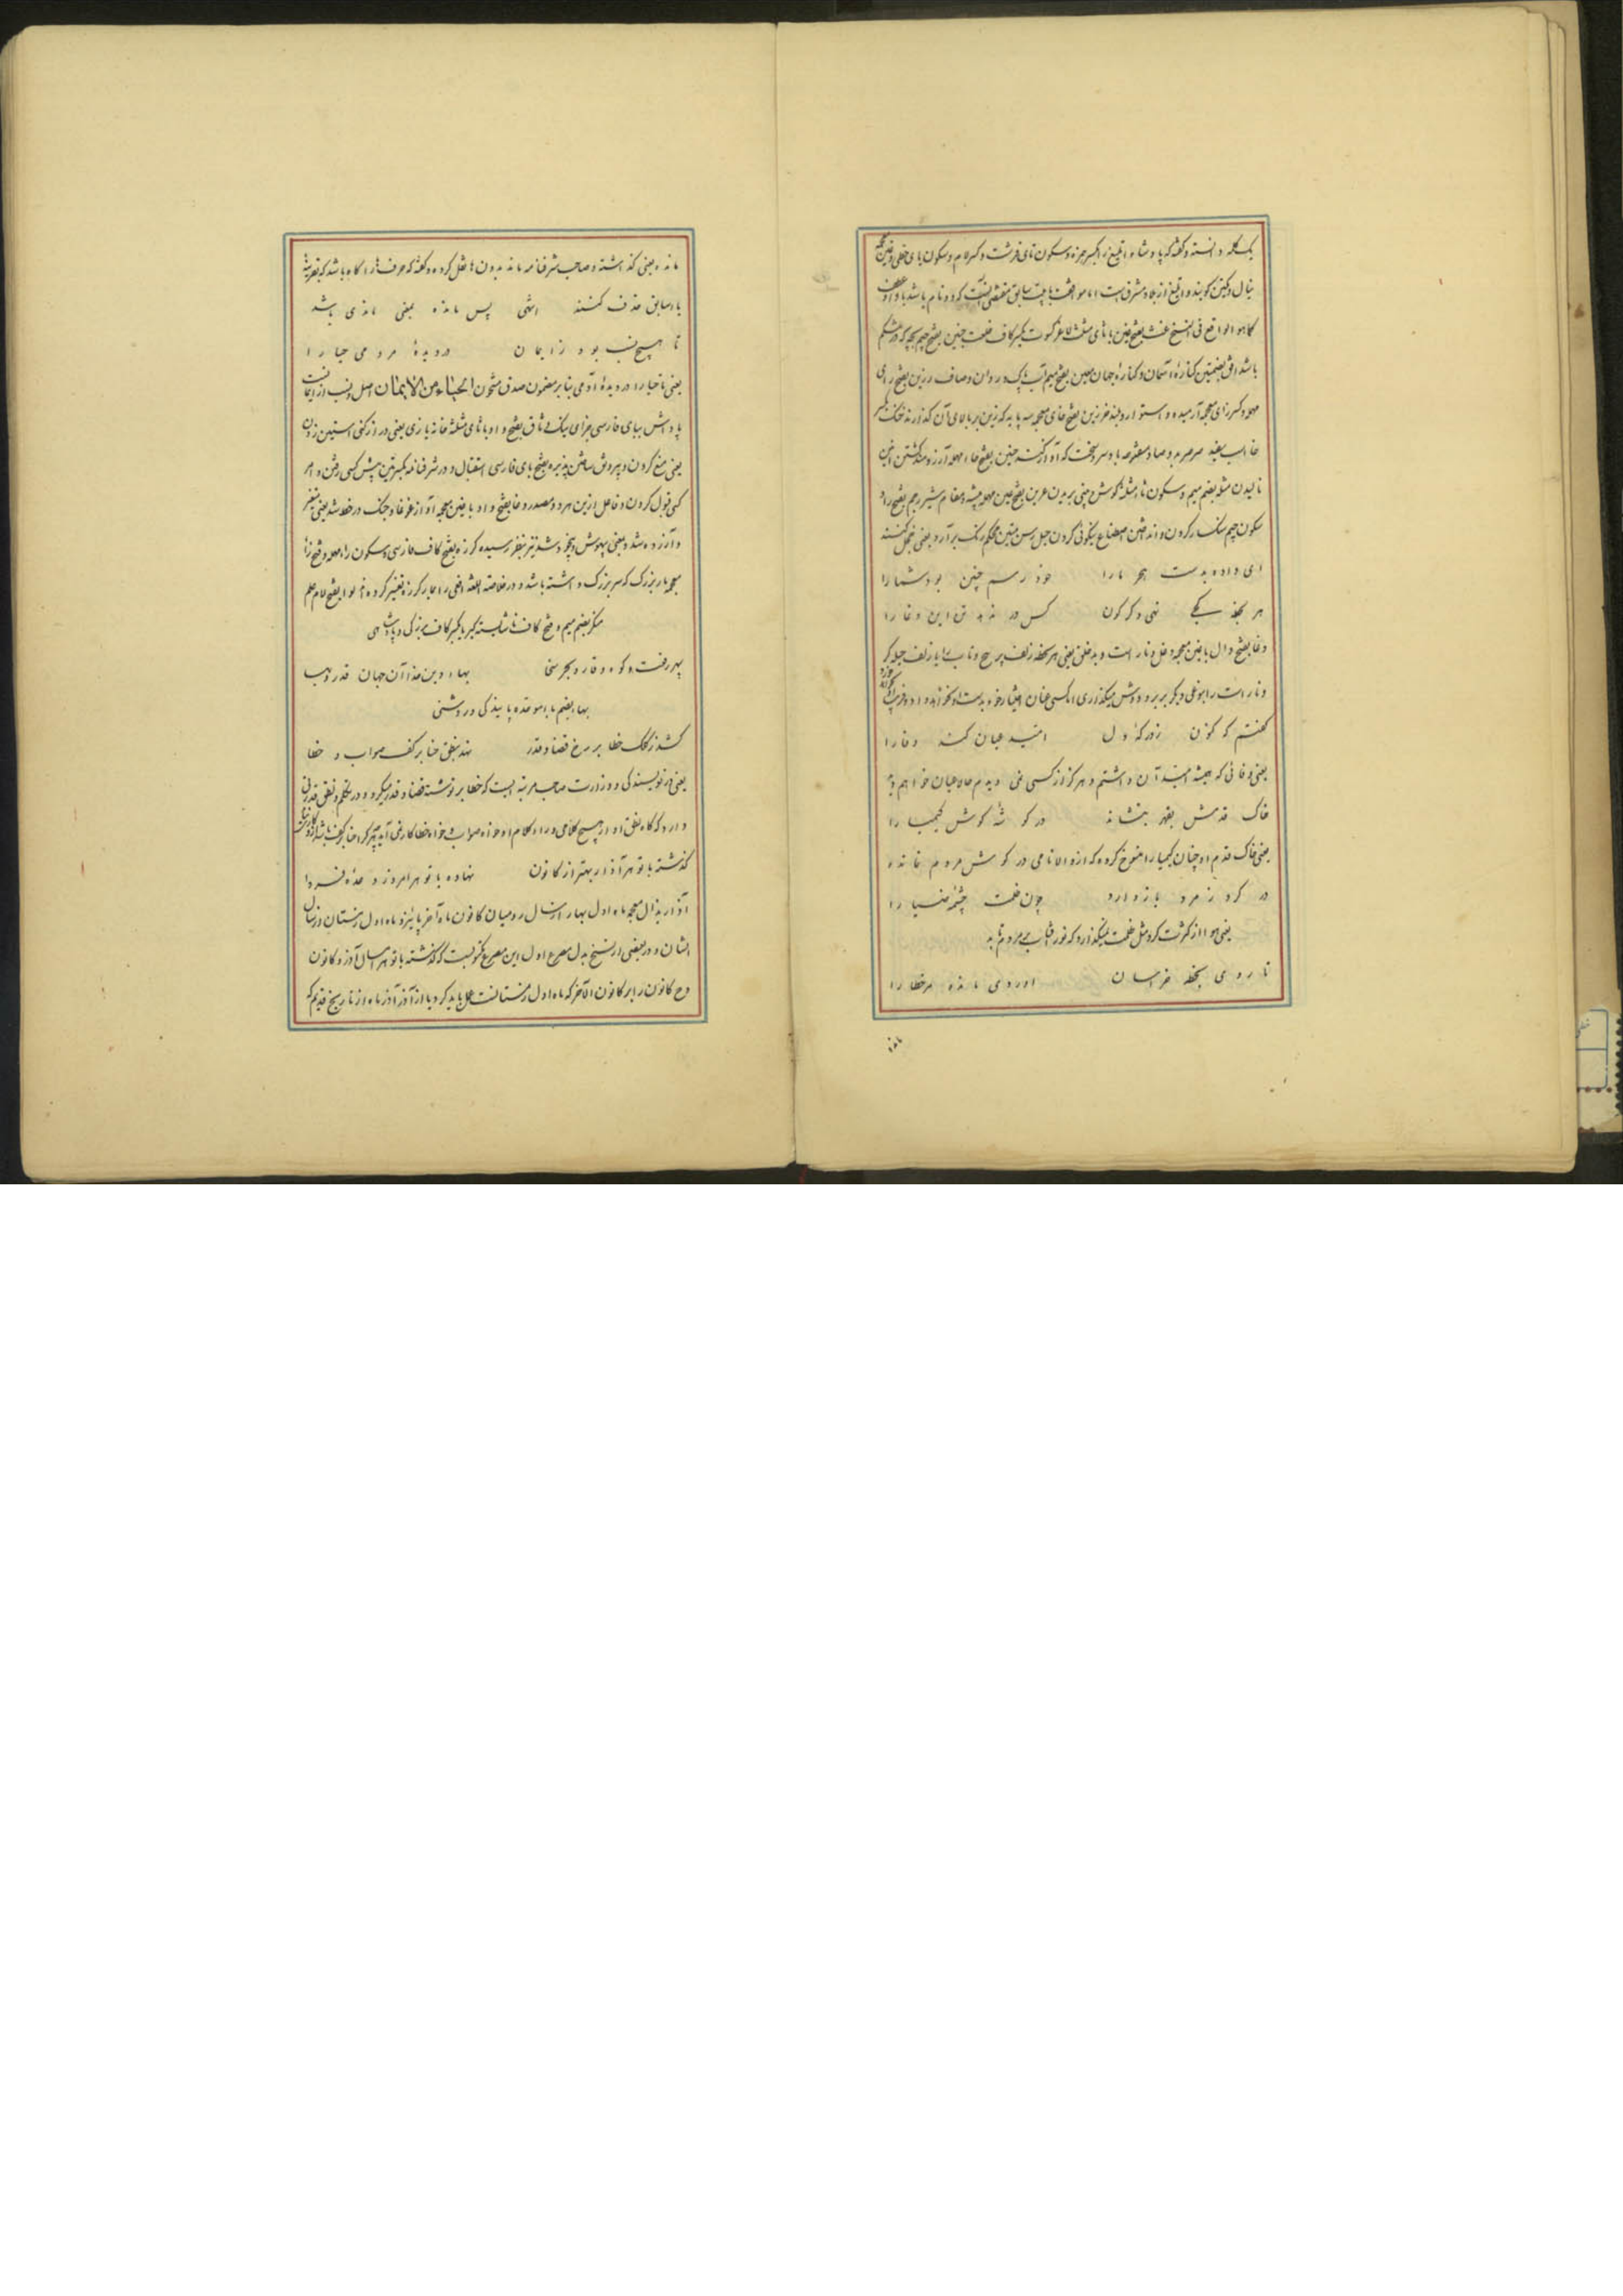 یک کله دانسته و گفته که پادشاه ایلیغ را بکسر همزه و سکون تای قرشت و کسر لام و سکون یای حطی و غین معجمه
نیال و تکین گویند و
کما هو الواقع فی النسخ غث بفتح غین با ثای مثلثه لاغر کسوت بکسر کاف خلعت جنین بفتح جیم بچه که در شکم
باشد افق بضمتین کناره آسمان و کناره جهان معین بفتح میم آب پاک و روان و صاف رزین بفتح رای
مهمله و کسر زای معجمه آرمیده و استوار و بلند خرزین بفتح خای معجمه سه پایه که زین بر بالای آن گذارند خنک بکسر
خا اسب سفید صرصر بدو صاد مفتوحه باد سرد سخت که آواز کند حنین بفتح حاء مهمله آرزومند گشتن انین
نالیدن مثله بضم میم و سکون ثا مثلثه گوش و بینی بریدن عرین بفتح عین مهمله بیشه و مقام شیر رجم بفتح راء
سکون جیم سنگسار کردن و انداختن اصطناع نیکوئی کردن حبل رسن متین محکم رنگ برآرد یعنی خجل کنند
ای داده بدست هجر ما را خود رسم چنین بود شما را
هر لحظه یکی نهی دگرگون کس در ندهد تن این دغا را
دغا بفتح دال با غین معجمه دغل و ناراست و بدخلق یعنی هر لحظه زلف پر پیچ و تاب را یا زلف حیله گر
و ناراست را بوضعی دیگر بر بر و دوش میگذاری اما کسی عنان اختیار خود بدست او
گفتم که کنون ز درگه دل امید عیان کند وفا را
یعنی وفائی که همیشه امید آن داشتم و هرگز از کسی نمی دیدم حالا عیان خواهم دید
خاک قدمش بقهر بنشاند در گوشه گوش کیمیا را
یعنی خاک قدم او چنان کیمیا را منسوخ کرده که ازو الا نامی در گوش مردم نمانده
در گرد ز مرد باز دارد چون ظلمت چشمه ضیا را
یعنی هوا از کثرت گرد مثل ظلمت نمیگذارد که نور آفتاب بمردم تابد
تا روی بخطه خراسان آوردی مانده مر خطا را
مانده
مانده یعنی گذاشته و صاحب شرفنامه مانه بدون ها نقل کرده و گفته که حرف ها را گاه باشد که بقرینه
یاء سابق حذف کنند انتهی پس مانده بمعنی ماندی باشد
تا هیچ نسب بود ز ایمان در دیده مردمی حیا را
یعنی تا حیا را در دیده آدمی بنابر مضمون صدق مشحون الحیاء من الایمان اصل و نسب از ایمانست
پاداش ببای فارسی جزای نیک وثاق بفتح واو با ثای مثلثه خانه یازی یعنی دراز کنی آستین زدن
یعنی منع کردن و پدروش ساختن پذیره بفتح بای فارسی استقبال و در شرفنامه بکسرتین پیش کسی رفتن و امر
کسی قبول کردن و فاعل ازین هر دو مصدر وغا بفتح واو با غین معجمه آواز غوغا و جنگ در خط شد یعنی متغیر
و آزرده شد و یعنی بیهوش و بیخود شد نیز بنظر رسیده گرزه بفتح کاف فارسی و سکون راء مهمله و فتح زاء
معجمه مار بزرگ که سر بزرگ داشته باشد و در خلاصة اللغة افعی را بمار گرزه تفسیر کرده لوا بفتح لام علم
منکر بضم میم و فتح کاف ناشایسته کبریا بکسر کاف بزرگی و پادشاهی
سپهر رفعت و کوه وقار و بحر سخا بهاء دین خدا آن جهان قدر و بها
بهاء بضم باء موحده پایندگی و روشنی
کشد ز کلک خطا بر رخ قضا و قدر نهد بنطق حنا بر کف صواب و خطا
یعنی در نویسندگی و وزارت صاحب مرتبه ایست که خط بر نوشته قضا و قدر میکرد و در تکلم و نطق قدرتی
دارد که گاه نطق او از هیچ کلامی
گذشته با تو هر آذار بهتر از کانون نهاده با تو هر امروز وعده فردا
آذار بذال معجمه ماه اول بهار از سال رومیان کانون ماه آخر پائیز و ماه اول زمستان از سال
ایشان و در بعضی از نسخ بدل مصرع اول این مصرع مکتوبست که گذشته با تو هر سال آذر و کانون
و ح کانون را بر کانون الآخر که ماه اول زمستانست حمل باید کرد یا از آذر آذر ماه از تاریخ قدیم که